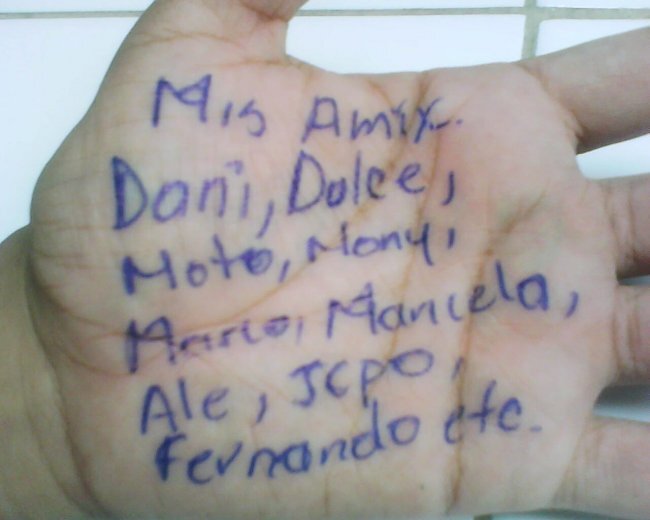 Mis Amix.
Dani, Dulce,
Moto, Mony,
Marco, Maricela,
Ale, JCPO,
Fernando etc.